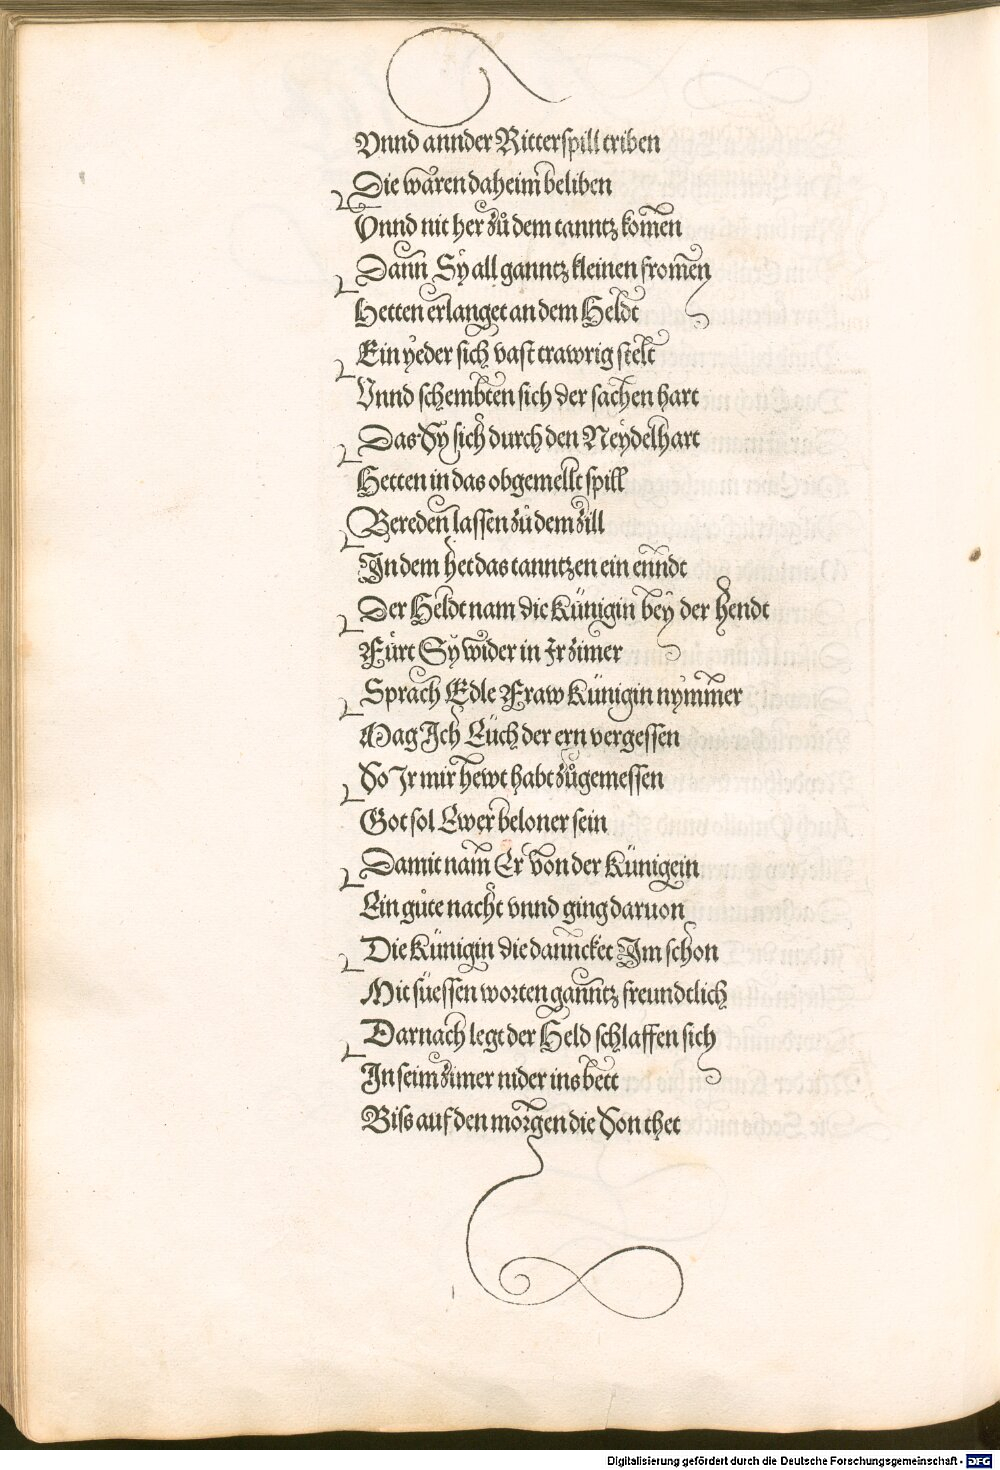 Vnnd annder Ritterspill triben
Die wåren daheim beliben
Vnnd nit her zů dem tanntz komen
Dann Sÿ all ganntz kleinen fromen
Hetten erlanget an dem Heldt
Ein ÿeder sich vast trawrig stelt
Vnnd schembten sich der sachen hart
Das Sÿ sich durch den Neÿdelhart
Hetten in das obgemellt spill
Bereden lassen zů dem zill
In dem het das tanntzen ein enndt
Der Heldt nam die Künigin beÿ der hendt
Fůrt Sÿ wider in Ir zimer
Sprach Edle Fraw Künigin nÿmmer
Mag Ich Eüch der ern vergessen
So Ir mir hewt habt zůgemessen
Got sol Ewer beloner sein
Damit nam Er von der Künigein
Ein gůte nacht vnnd ging daruon
Die Künigin die danncket Im schon
Mit süessen worten ganntz freundtlich
Darnach legt der Held schlaffen sich
In seim zimer nider ins bett
Biss auf den morgen die Son thet
Digitalisierung gefördert durch die Deutsche Forschungsgemeinschaft - DFG